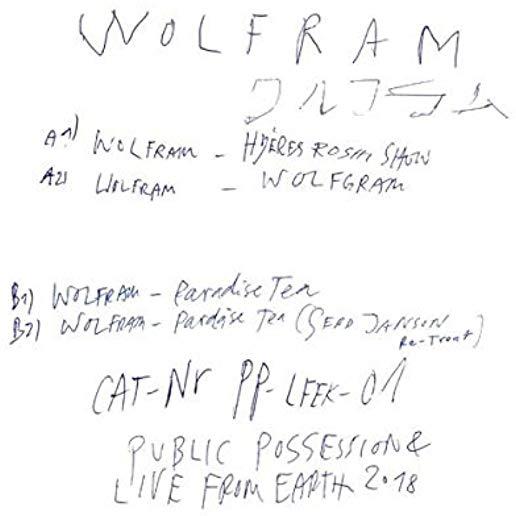 WOLFRAM
A1) WOLFRAM - HYÈRES ROSM SHOW
A2) WOLFRAM - WOLFGRAM
B1) WOLFRAM - Paradise Tea
B2) WOLFRAM - Pardise Tea (GERD JANSON
Re-Treat)
CAT-Nr PP-LFEK-01
PUBLIC POSSESSION &
LIVE FROM EARTH 2018